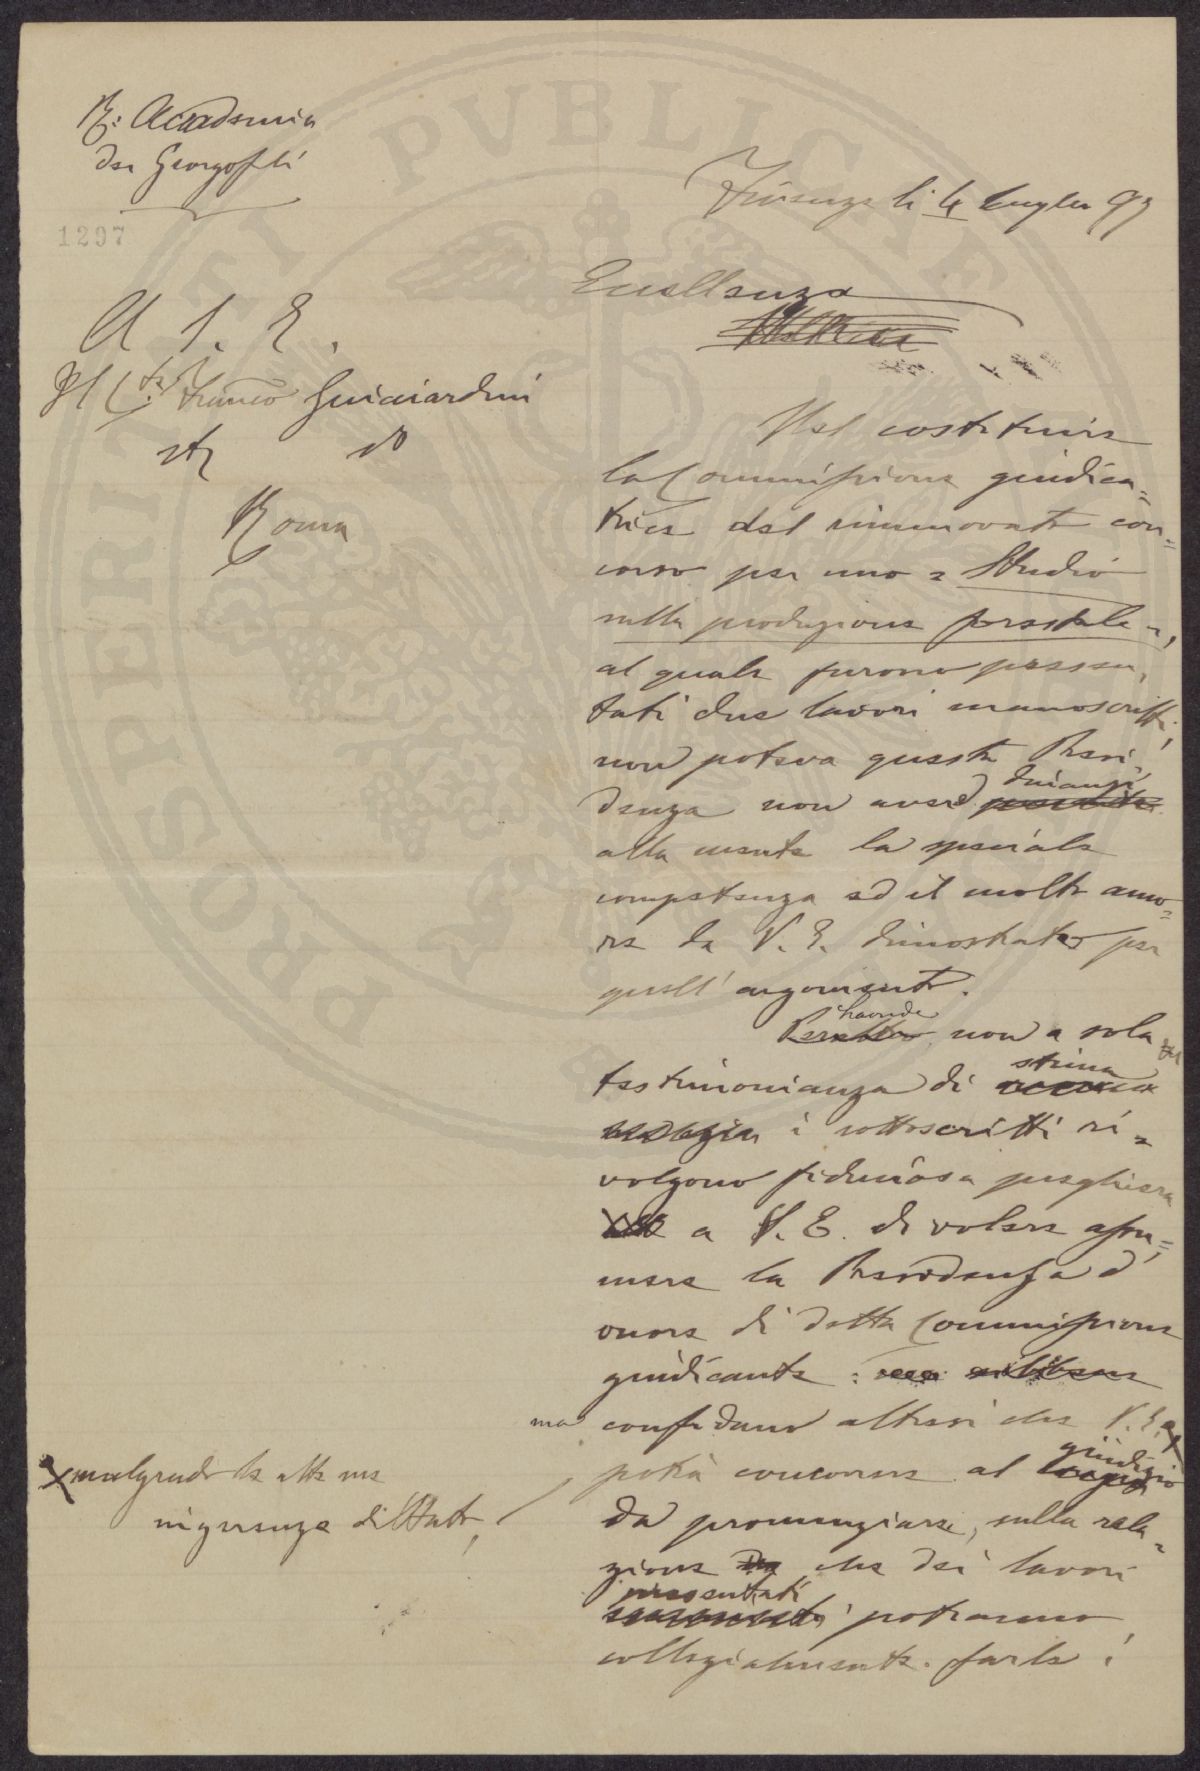 R. Accademia
dei Georgofili
1297
Firenze li 4 Luglio 97
A S. E.
Il Cte Franco Guiciardini
etc
Roma
Eccellenza
Nel costituire
la Commissione giudica=
trice del rinnovato con=
corso per uno = Studio
sulla produzione forestale =,
al quale furono presen,
tati due lavori manoscritti,
non poteva questa Presi,
denza non aver dinanzi
alla mente la speciale
competenza ed il molto amo=
re da V. E. dimostrato per
quell'argomento.
Laonde non a sola
testimonianza di stima
i sottoscritti ri=
volgono fiduciosa preghiera
a V. E. di volere assu=
mere la Presidenza d'
onore di detta Commissione
giudicante:
ma confidano altresì che V. E. x
x malgrado le alte me
ingerenze di Stato,
potrà concorrere al giudizio
da pronunziarsi, sulla rela=
zione che dei lavori
presentati potranno
collegialmente farle!
PROSPERITATI PVBLICAE